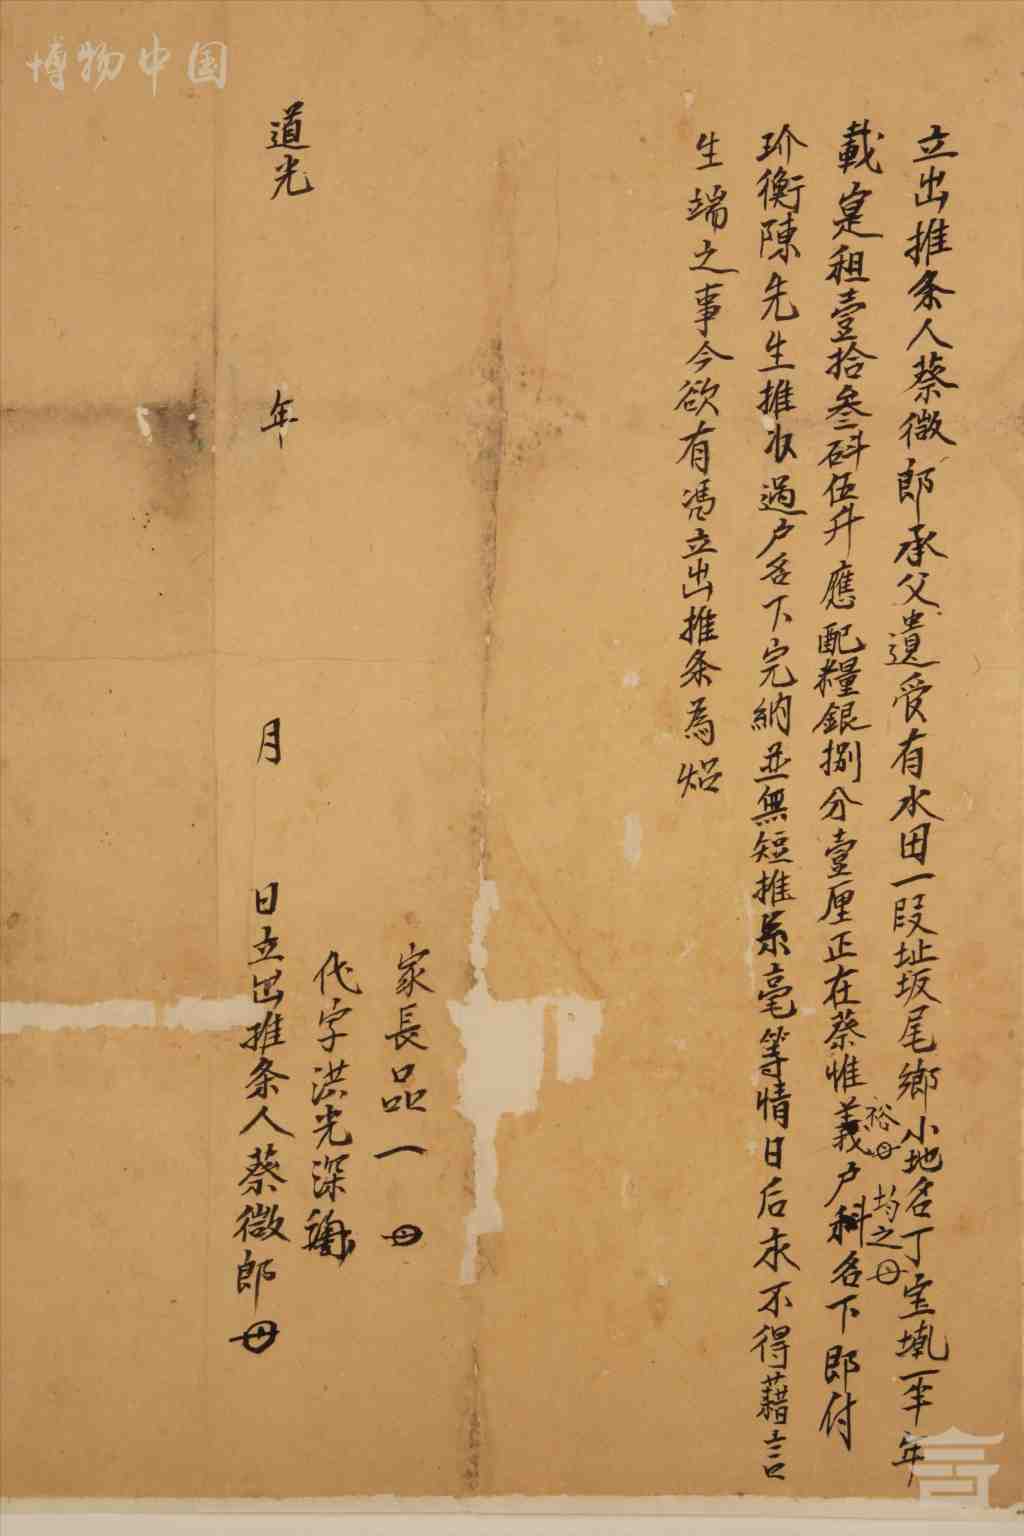 博物中国
立出推条人蔡微郎承父遺受有水田一段址坂尾鄉小地名丁宝墘一半年
裕 均之
載寔租壹拾叁斗伍升應配糧銀捌分壹厘正在蔡惟義户科名下即付
玠衡陳先生推收過户名下完納並無短推系毫等情日后永不得藉言
生端之事今欲有馮立出推条為炤
家長品一
代字洪光深
道光 年 月 日立出推条人蔡微郎